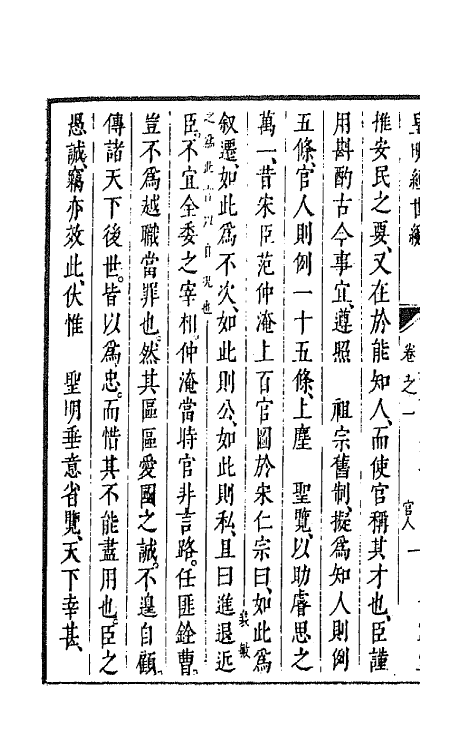 皇明經世編 卷之一 官人 一
惟安民之要、又在於能知人、而使官稱其才也、臣謹
用斟酌古今事宜、遵照 祖宗舊制、擬爲知人則例
五條、官人則例一十五條、上塵 聖覽、以助睿思之
萬一、昔宋臣范仲淹上百官圖於宋仁宗曰、如此爲
叙遷、如此爲不次、如此則公、如此則私、且曰進退近
臣、不宜全委之宰相、仲淹當時官非言路。任匪銓曹。
豈不爲越職當罪也、然其區區愛國之誠。不遑自顧。
傳諸天下後世。皆以爲忠。而惜其不能盡用也。臣之
愚誠、竊亦效此、伏惟 聖明垂意省覽、天下幸甚、